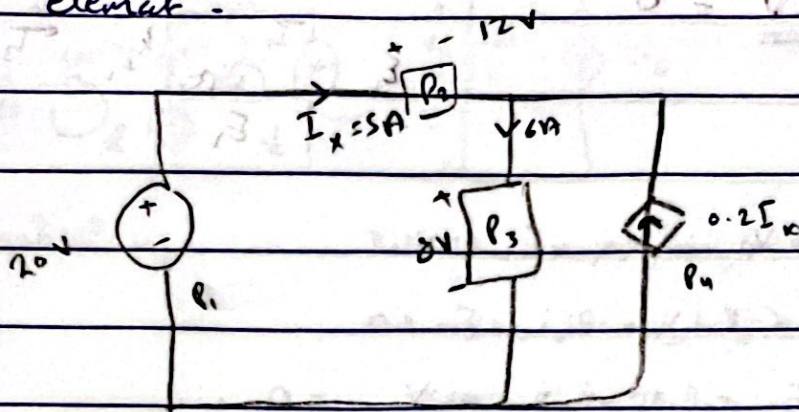 element.
+ - 12V
P2
Ix = 5A
6A
+
-
20V
P1
+
8V
-
P3
0.2Ix
P4